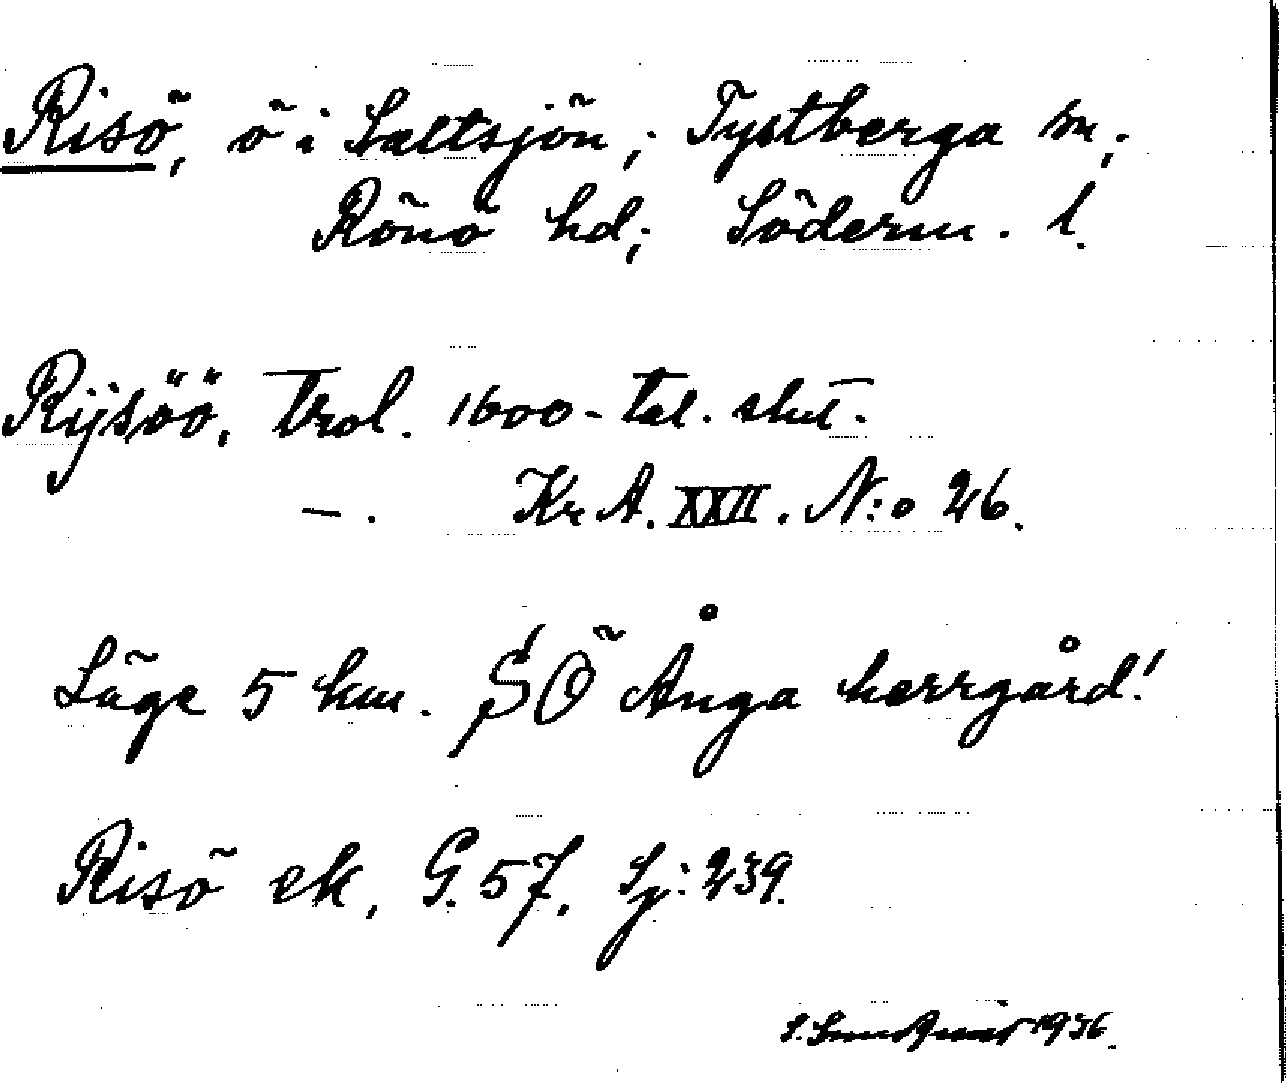 Risö, ö i Saltsjön; Tystberga sn;
Rönö hd; Söderm. l.
Rijsöö, trol. 1600-tal. slut.
—. Kr A. XXII. N:o 26.
Läge 5 km. SÖ Ånga herrgård!
Risö ek. G. 57. Sj: 239.
1936.